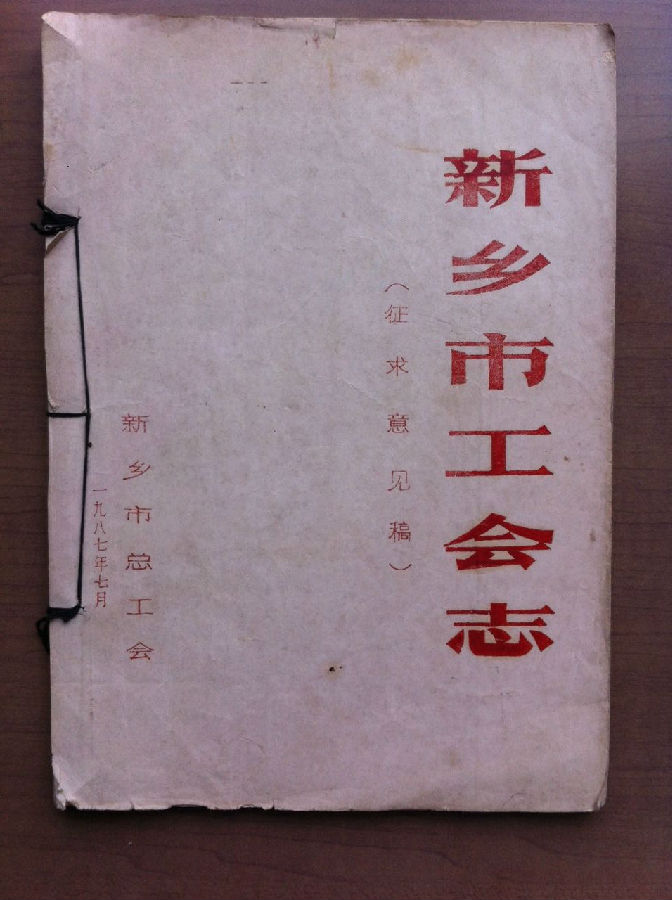 新乡市工会志
（征求意见稿）
新乡市总工会
一九八七年七月